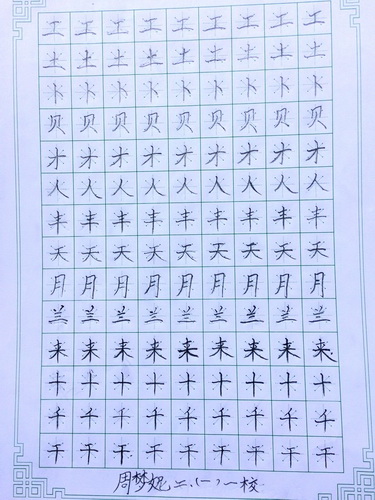 工工工工工工工工工
土土土土土土土土土
卜卜卜卜卜卜卜卜卜
贝贝贝贝贝贝贝贝贝
才才才才才才才才才
人人人人人人人人人
丰丰丰丰丰丰丰丰丰
天天天天天天天天天
月月月月月月月月月
兰兰兰兰兰兰兰兰兰
来来来来来来来来来
十十十十十十十十十
千千千千千千千千千
干干干干干干干干干
周梦妮二.(一)一校